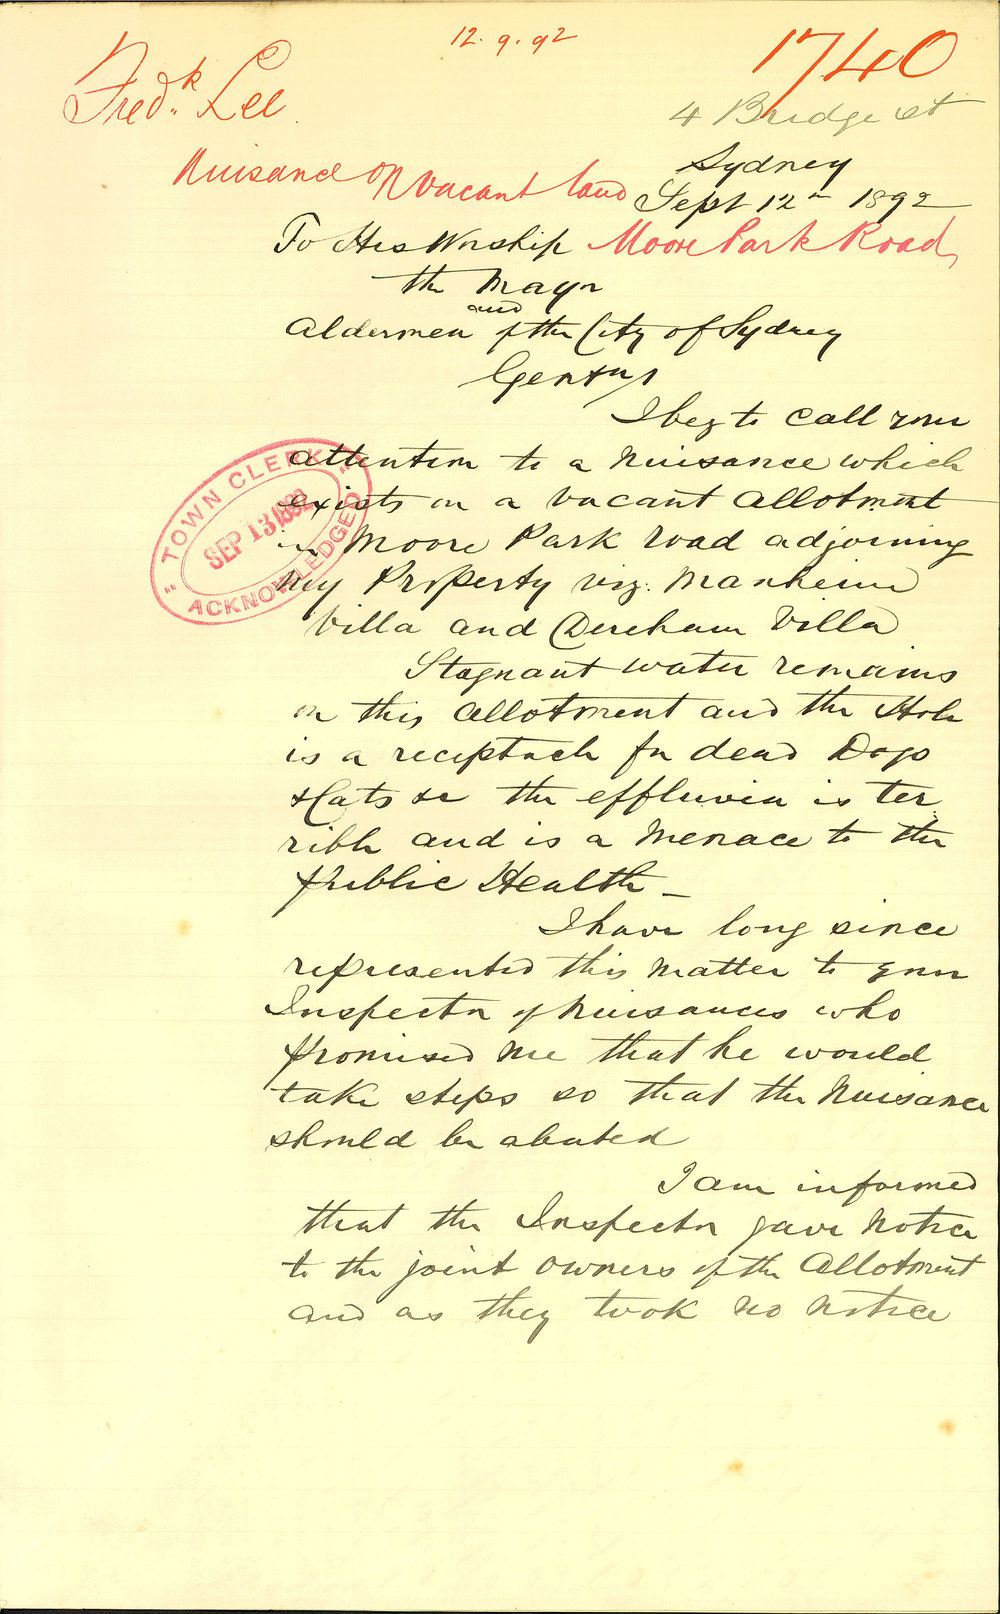 12. 9. 92
1740
Fredk. Lee.
4 Bridge st
Sydney
Nuisance on vacant land
Sept 12th 1892
To His Worship
Moore Park Road,
the Mayor
and
Aldermen of the City of Sydney
Gentns
I beg to call your
attention to a Nuisance which
exists on a vacant allotment
in Moore Park road adjoining
My Property viz. Manheim
Villa and Dereham Villa
Stagnant water remains
on this allotment and the Hole
is a receptacle for dead Dogs
& Cats &c the effluvia is ter
rible and is a Menace to the
public Health _
I have long since
represented this matter to your
Inspector of Nuisances who
promised me that he would
take steps so that the Nuisance
should be abated
I am informed
that the Inspector gave notice
to the joint owners of the allotment
and as they took no notice
"TOWN CLERK"
SEP 13 1892
ACKNOWLEDGED